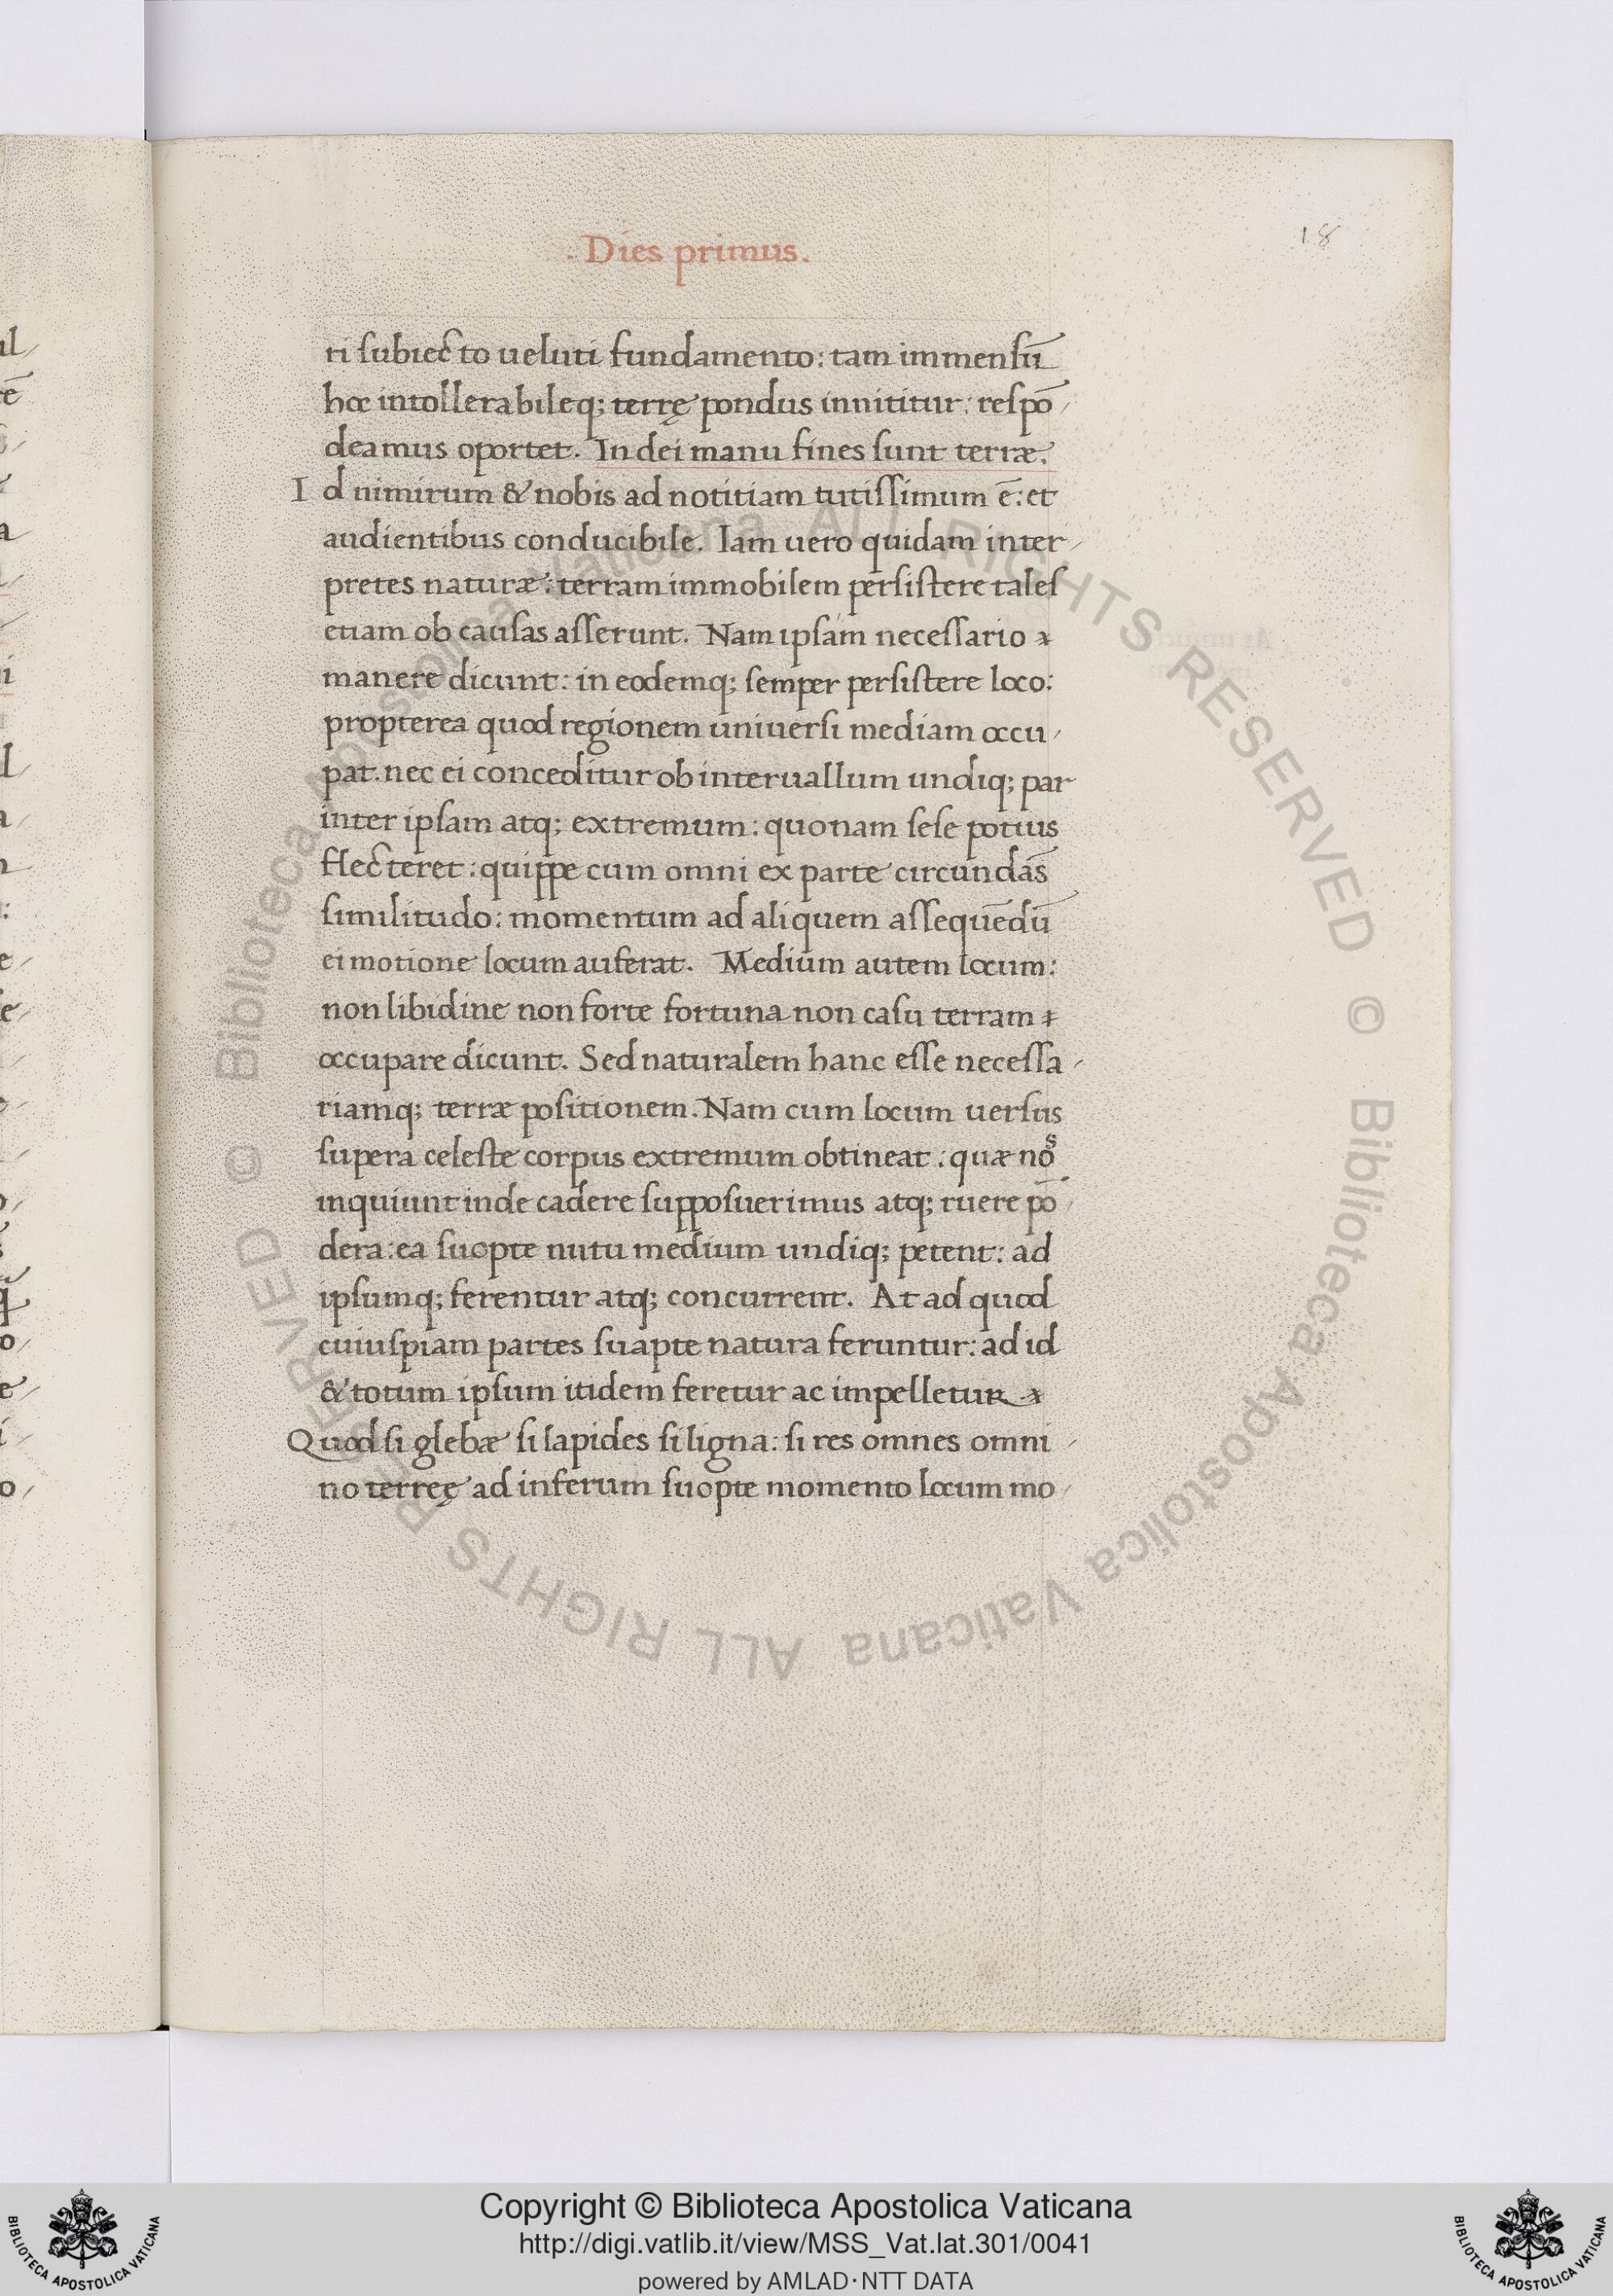 . Dies primus.
18
ti subiecto ueluti fundamento: tam immensū
hoc intollerabileq; terrę pondus innititur: respō
deamus oportet. In dei manu fines sunt terræ.
Id nimirum & nobis ad notitiam tutissimum ē: et
audientibus conducibile. Iam uero quidam inter
pretes naturæ: terram immobilem persistere tales
etiam ob causas asserunt. Nam ipsam necessario
manere dicunt: in eodemq; semper persistere loco:
propterea quod regionem uniuersi mediam occu
pat. nec ei conceditur ob interuallum undiq; par
inter ipsam atq; extremum: quonam sese potius
flecteret: quippe cum omni ex parte circundās
similitudo: momentum ad aliquem assequēdū
ei motione locum auferat. Medium autem locum:
non libidine non forte fortuna non casu terram
occupare dicunt. Sed naturalem hanc esse necessa
riamq; terræ positionem. Nam cum locum uersus
supera celeste corpus extremum obtineat: quæ nos
inquiunt inde cadere supposuerimus atq; ruere pō
dera: ea suopte nutu medium undiq; petent: ad
ipsumq; ferentur atq; concurrent. At ad quod
cuiuspiam partes suapte natura feruntur: ad id
& totum ipsum itidem feretur ac impelletur
Quod si glebæ si lapides si ligna: si res omnes omni
no terreę ad inferum suopte momento locum mo
© Biblioteca Apostolica Vaticana ALL RIGHTS RESERVED
© Biblioteca Apostolica Vaticana ALL RIGHTS RESERVED
Copyright © Biblioteca Apostolica Vaticana
http://digi.vatlib.it/view/MSS_Vat.lat.301/0041
powered by AMLAD·NTT DATA
BIBLIOTECA APOSTOLICA VATICANA
BIBLIOTECA APOSTOLICA VATICANA